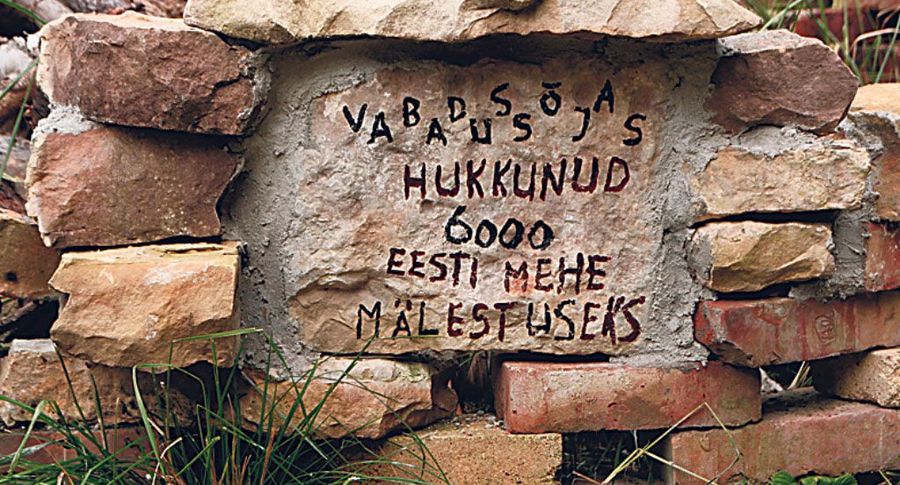 VABADUSSÕJAS
HUKKUNUD
6000
EESTI MEHE
MÄLESTUSEKS